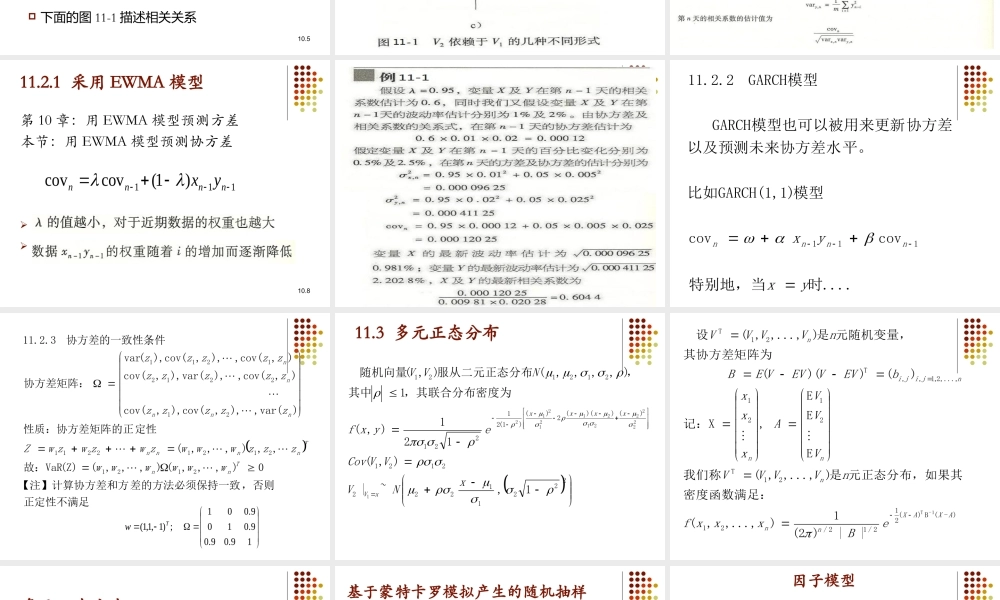 下面的图 11-1 描述相关关系
10.5
c)
图 11-1 V₂ 依赖于 V₁ 的几种不同形式
第 n 天的相关系数的估计值为
11.2.1 采用 EWMA 模型
第 10 章：用 EWMA 模型预测方差
本节：用 EWMA 模型预测协方差
covₙ = λcovₙ₋₁ + (1 - λ)xₙ₋₁yₙ₋₁
λ 的值越小，对于近期数据的权重也越大
数据 xₙ₋₁yₙ₋₁ 的权重随着 i 的增加而逐渐降低
10.8
例 11-1
假设 λ = 0.95，变量 X 及 Y 在第 n - 1 天的相关
系数估计为 0.6，同时我们又假设变量 X 及 Y 在第
n - 1天的波动率估计分别为 1% 及 2%。由协方差及
相关系数的关系式，在第 n - 1 天的协方差估计为
0.6 × 0.01 × 0.02 = 0.000 12
假定变量 X 及 Y 在第 n - 1 天的百分比变化分别为
0.5% 及 2.5%，在第 n 天的方差及协方差的估计分别为
σ²ₓ,ₙ = 0.95 × 0.01² + 0.05 × 0.005²
= 0.000 096 25
σ²y,ₙ = 0.95 × 0.02² + 0.05 × 0.025²
= 0.000 411 25
covₙ = 0.95 × 0.000 12 + 0.05 × 0.005 × 0.025
= 0.000 120 25
变量 X 的最新波动率估计为 √0.000 096 25
0.981%；变量 Y 的最新波动率估计为 √0.000 411 25
2.202 8%，X 及 Y 的最新相关系数为
0.000 120 25 / 0.009 81 × 0.020 28 = 0.604 4
11.2.2 GARCH模型
GARCH模型也可以被用来更新协方差
以及预测未来协方差水平。
比如GARCH(1,1)模型
covₙ = ω + α xₙ₋₁yₙ₋₁ + β covₙ₋₁
特别地，当x = y时....
11.2.3 协方差的一致性条件
var(z₁),cov(z₁,z₂),⋯,cov(z₁,zₙ)
cov(z₂,z₁),var(z₂),⋯,cov(z₂,zₙ)
协方差矩阵： Ω =
⋯
cov(zₙ,z₁),cov(zₙ,z₂),⋯,var(zₙ)
性质：协方差矩阵的正定性
Z = w₁z₁ + w₂z₂ + ⋯wₙzₙ = (w₁,w₂,⋯,wₙ)(z₁,z₂,⋯,zₙ)ᵀ
故：VaR(Z) = (w₁,w₂,⋯,wₙ)Ω(w₁,w₂,⋯,wₙ)ᵀ > 0
【注】计算协方差和方差的方法必须保持一致，否则
正定性不满足
w = (1,1,-1)ᵀ; Ω =
1 0 0.9
0 1 0.9
0.9 0.9 1
11.3 多元正态分布
随机向量(V₁,V₂)服从二元正态分布N(μ₁,μ₂,σ₁,σ₂,ρ),
其中|ρ| < 1，其联合分布密度为
f(x, y) = 1 / 2πσ₁σ₂√1 - ρ²
Cov(V₁,V₂) = ρσ₁σ₂
V₂ |V₁=x ~ N(μ₂ + ρσ₂ (x - μ₁)/σ₁, (σ₂√1 - ρ²)²)
设Vᵀ = (V₁,V₂,...,Vₙ)是n元随机变量，
其协方差矩阵为
B = E(V - EV)(V - EV)ᵀ = (bᵢ,ⱼ)ᵢ,ⱼ₌₁,₂,...,ₙ
x₁ EV₁
x₂ EV₂
记：X = , A =
⋮ ⋮
xₙ EVₙ
我们称Vᵀ = (V₁,V₂,...,Vₙ)是n元正态分布，如果其
密度函数满足：
f(x₁,x₂,...,xₙ) = 1 / (2π)ⁿᐟ² | B |¹ᐟ² e^(-½(X-A)ᵀB⁻¹(X-A))
基于蒙特卡罗模拟产生的随机抽样
因子模型